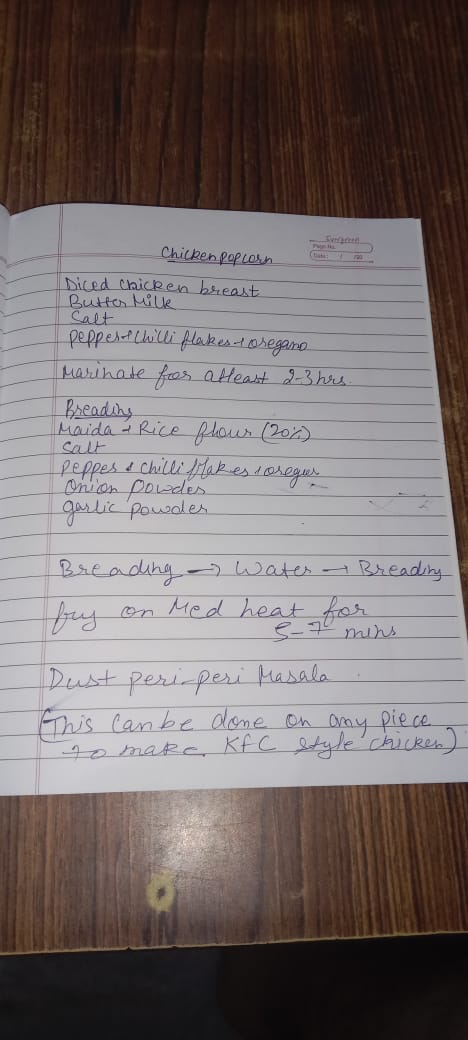 Evergreen
Page No.
Date: / /20
Chicken popcorn
Diced chicken breast
Butter Milk
Salt
Pepper + Chilli flakes + oregano
Marinate for atleast 2-3 hrs.
Breading
Maida + Rice flour (20%)
Salt
Pepper + chilli flakes +
Onion powder
garlic powder
Breading → Water → Breading
fry on Med heat for
5-7 mins
Dust peri-peri Masala
(This can be done on any piece
to make KFC style chicken)